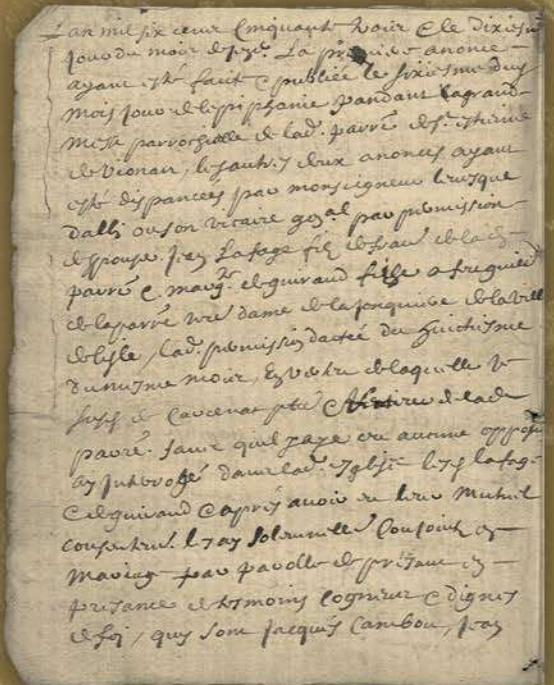 L'an mil six cens cinquante trois E le dixiesme
jour du mois de janv^r. La première anonce
ayant esté faite E publiée le sixiesme dud
mois jour de lepiphanie pandant la grand
messe parrochialle de lad. parre de S^t. estienne
de Vionan, les autres deux anonces ayant
esté dispancees par monseigneur levesque
dalbi ou son vicaire gnal par permission
despouse. Jean Lafage filz de de lad
parre E marg^te. de guiraud fille a
de la parre nre dame de la jonquiere de la ville
de lisle, lad. permission dactée du huictiesme
du mesme mois, En vertu de laquelle Je
de Caucenat ptre E de lad
parre. sans quil y aye eu aucune opposi
ay Interrogé dans lad. Esglise lesd lafage
E de guiraud E après avoir eu leur mutuel
consentem. les ay solemnelle^t Conjoints en
mariage par parolle de present en
presance de tesmoins cogneus E dignes
de foi, quy sont jacques Cambou, jean